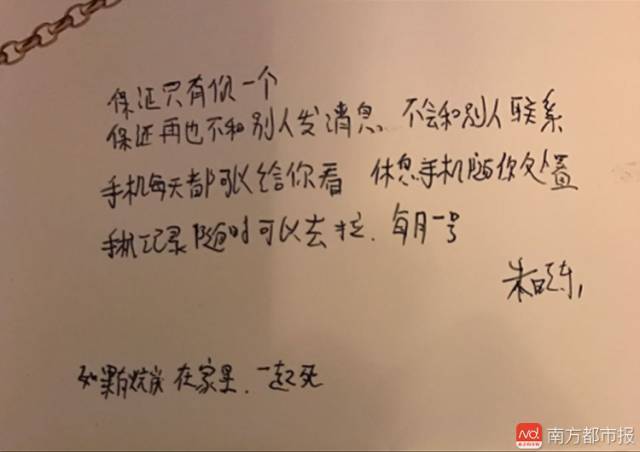 保证只有你一个
保证再也不和别人发消息 不会和别人联系
手机每天都可以给你看 休息手机随你处置
手机记录随时可以去拉、每月一号
朱晓东
如果有炕炭在家里、一起死
南方都市报